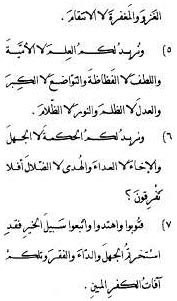 الغزو والمغفرة لا الانتقام.
٥) ونريد لكم العلم لا الأميّة
واللطف لا الفظاظة والتواضع لا الكبر
والعدل لا الظلم والنور لا الظلام.
٦) ونريد لكم الحكمة لا الجهل
والإخاء لا العداء والهدى لا الضلال أفلا
تفرقون؟
٧) فتوبوا واهتدوا واتبعوا سبيل الخير فقد
استحرّ الجهل والداء والفقر وتلكم
آفات الكفر المبين.